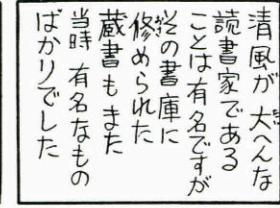 清風が大へんな
読書家である
ことは有名ですが
その書庫に
修められた
蔵書もまた
当時有名なもの
ばかりでした